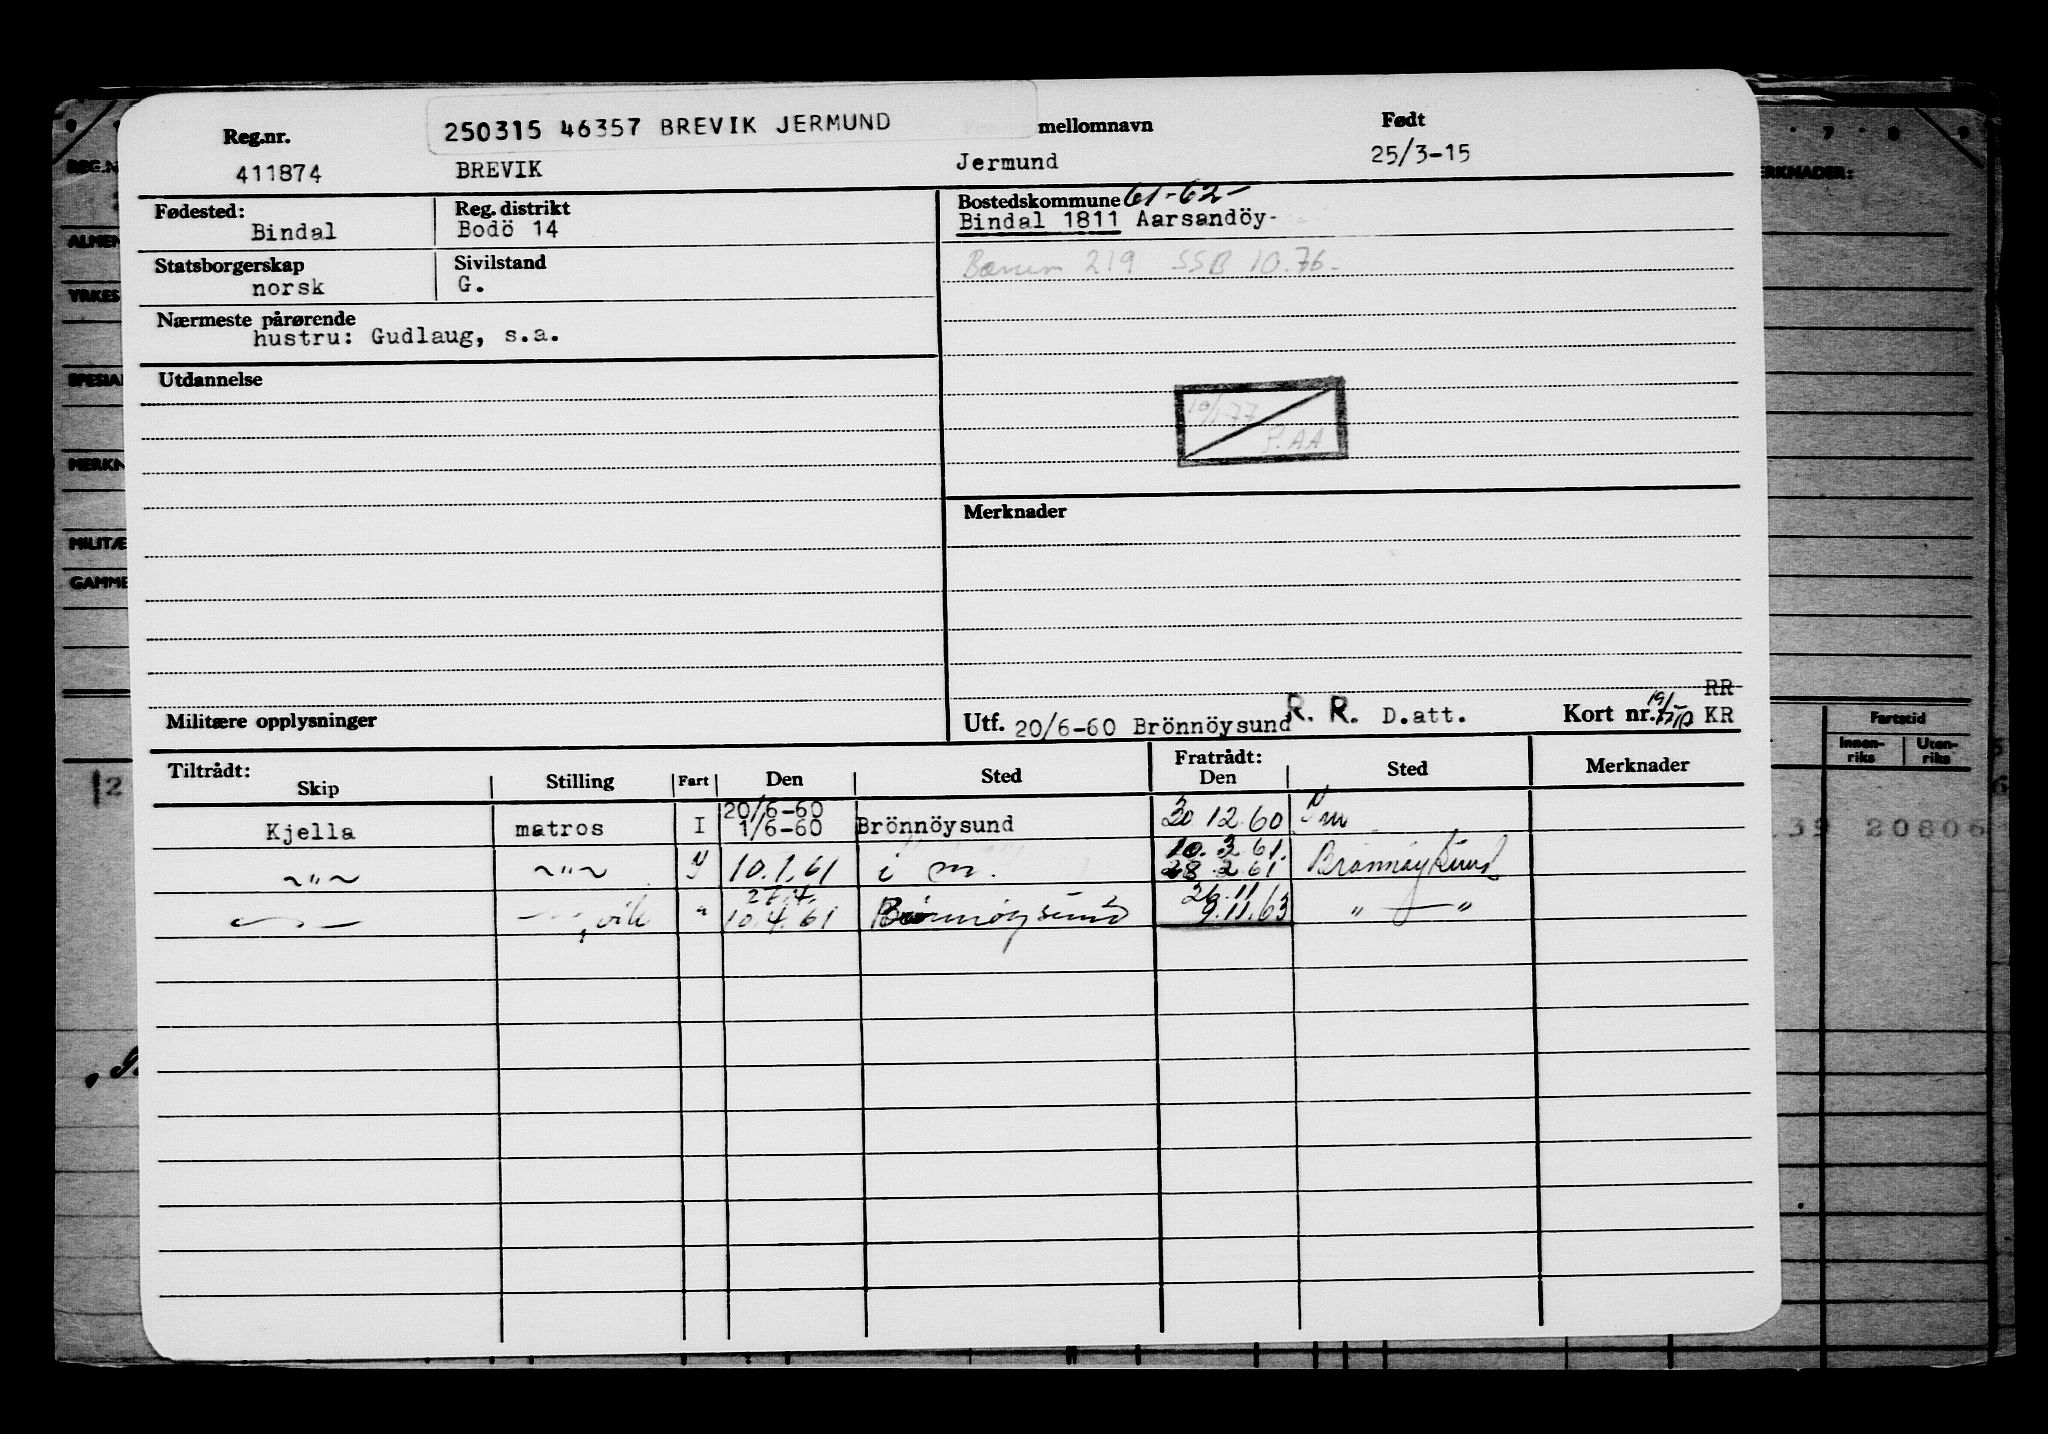 250315 46357 BREVIK JERMUND
Reg.nr. mellomnavn Født
411874 BREVIK Jermund 25/3-15
Fødested: Reg. distrikt Bostedskommune 61-62-
Bindal Bodö 14 Bindal 1811 Aarsandöy-
Statsborgerskap Sivilstand 219 SSB 10.76-
norsk G.
Nærmeste pårørende
hustru: Gudlaug, s.a.
Utdannelse
P.AA
Merknader
RR
Militære opplysninger Utf. 20/6-60 Brönnöysund R. R. D.att. Kort nr. KR
Tiltrådt: Fratrådt:
Skip Stilling Fart Den Sted Den Sted Merknader
20/6-60
Kjella matros I 1/6-60 Brönnöysund 30 12.60
10. 3 61.
~"~ ~"~ 10.1.61 i m. 28 2 61 Brønnøysund
27.4. 26.11
" 10.4.61 Brønnøysund 9.11.63 " — "
REG.N
ALMEN
YRKES
SPESIA
MERKN
MILITÆ
GAMME
7 8 9
ERKNADER:
Fartstid
Innen-riks Uten-riks
39 20806